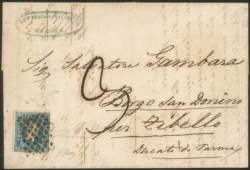 Sig. Salvatore Gambara
3
Borgo San Donino
per Zibello
Ducato di Parma